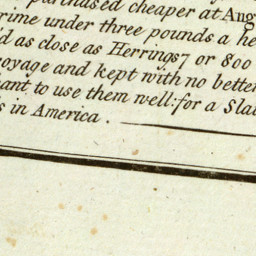 purchased cheaper at Ang
rime under three pounds a he
d as close as Herrings 7 or 800
voyage and kept with no better
hant to use them well: for a Sla
s in America.